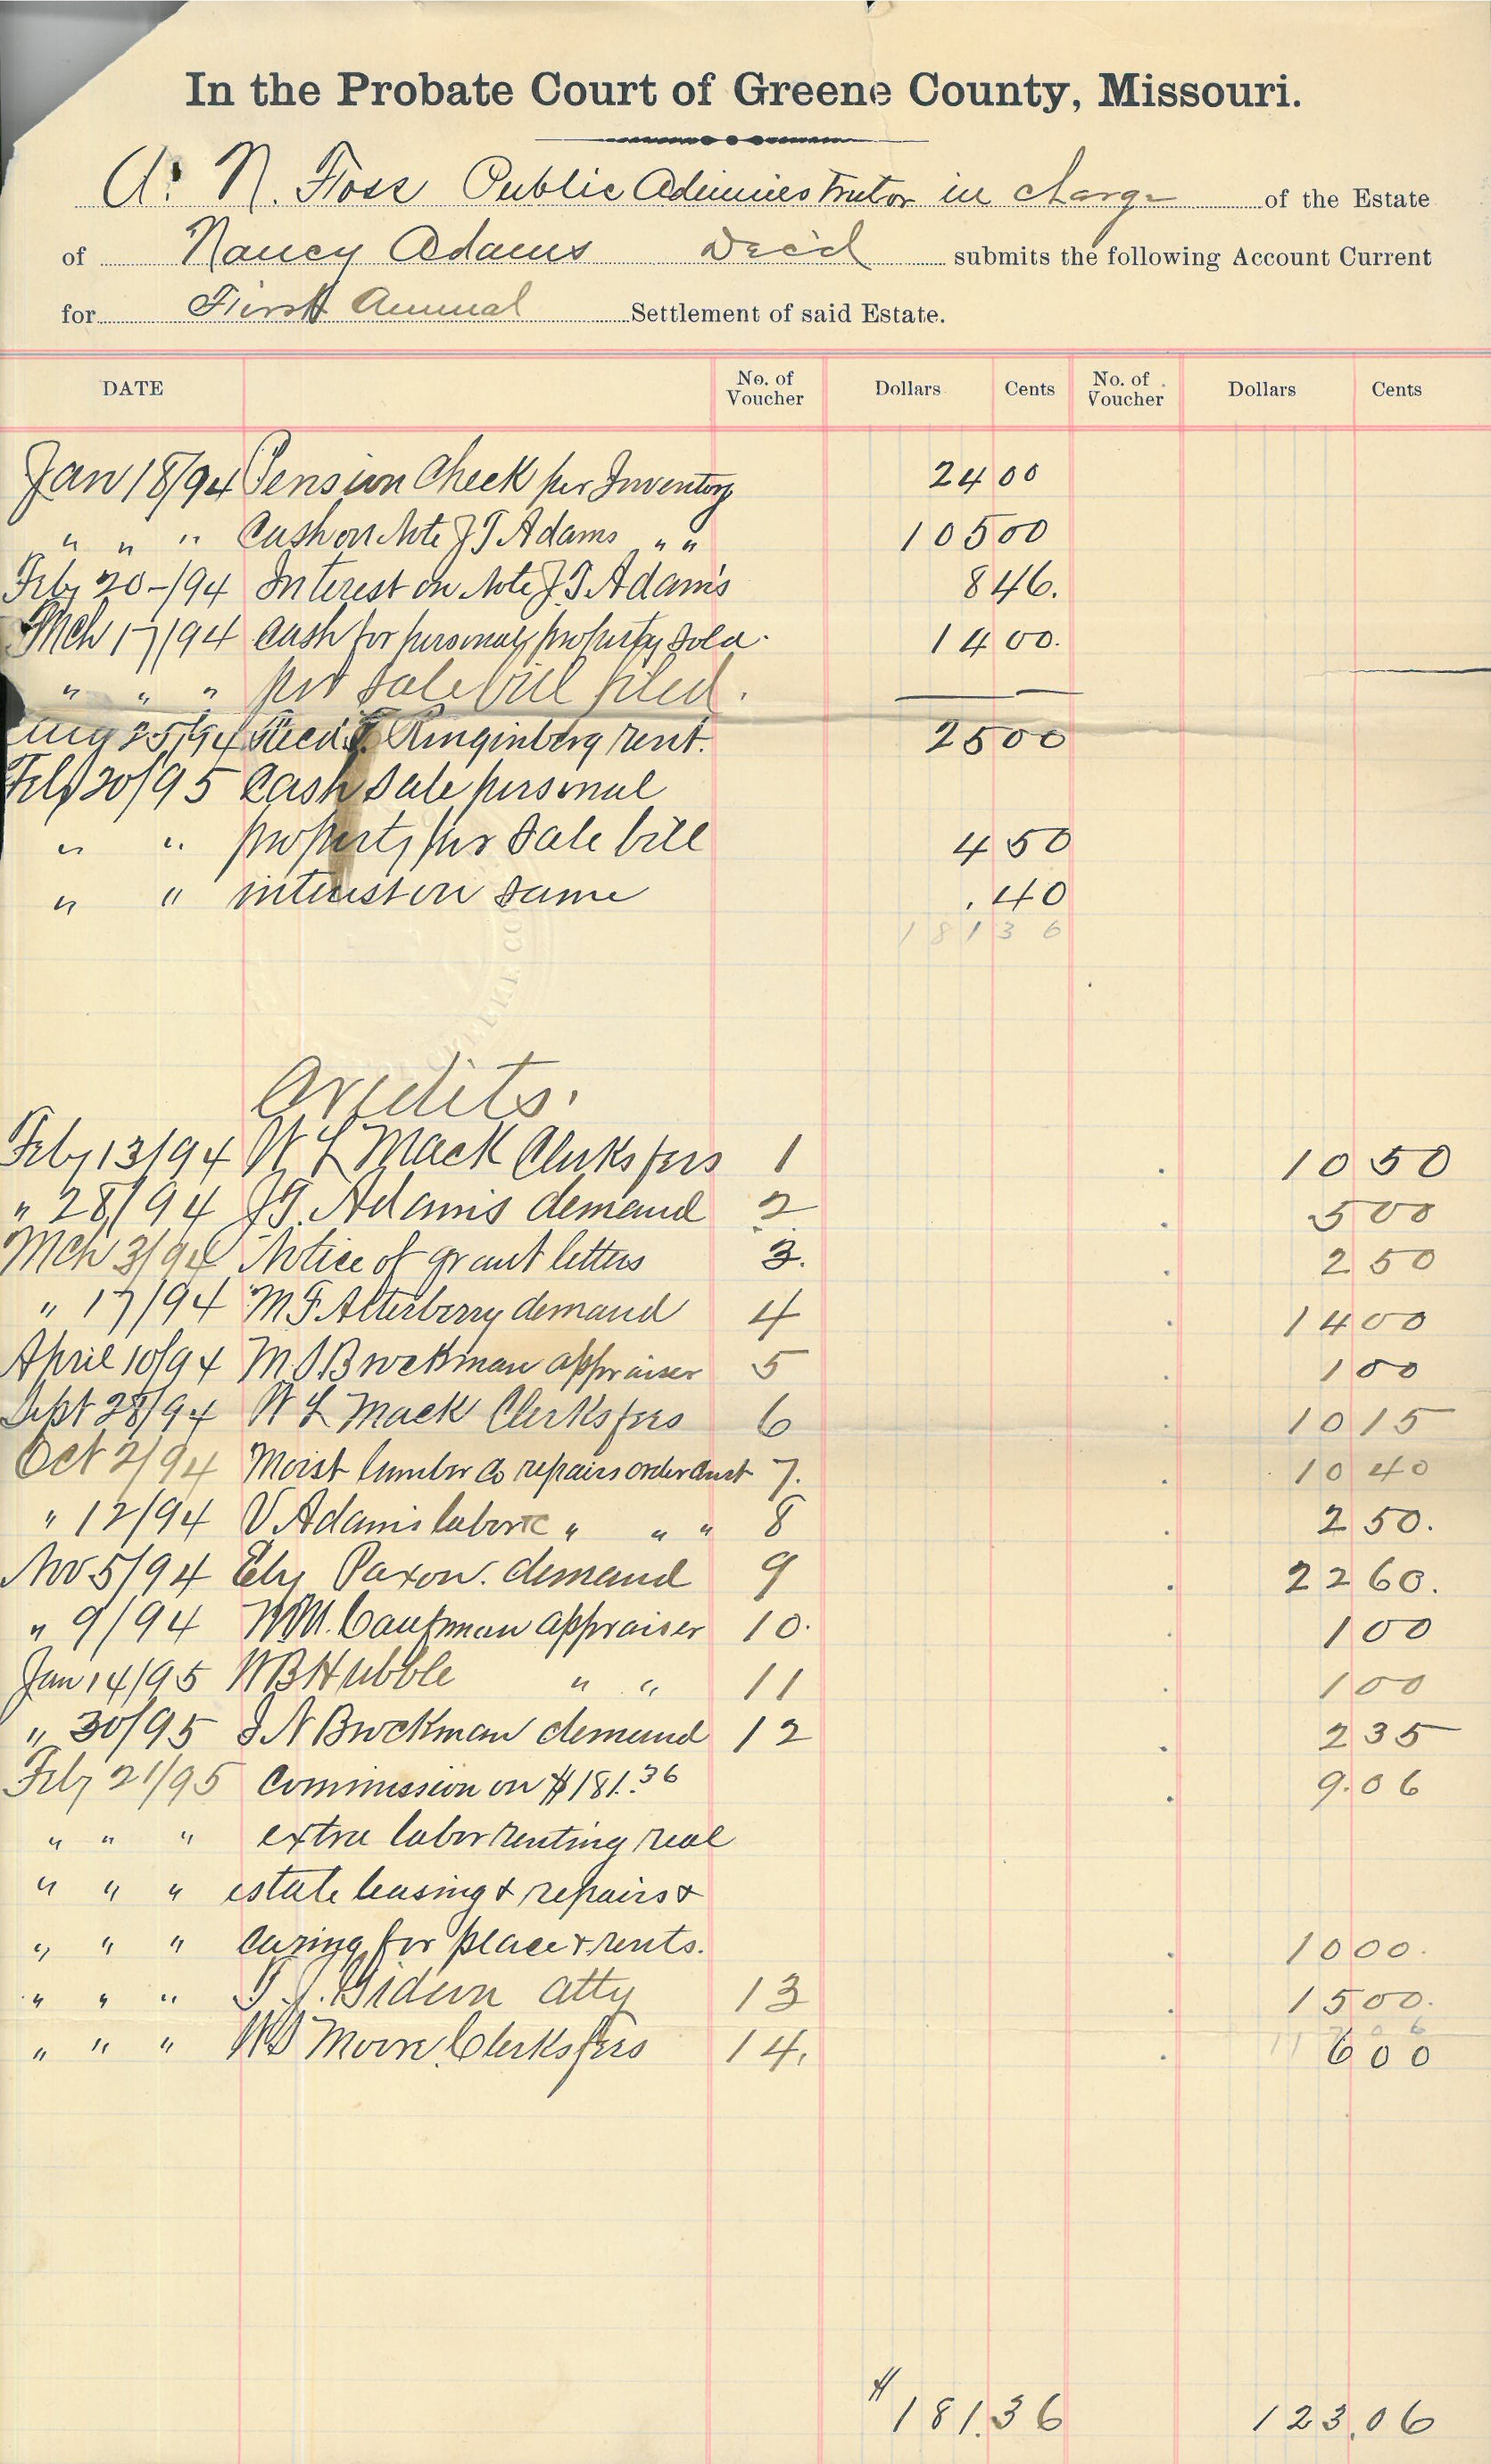 In the Probate Court of Greene County, Missouri.
A. N. Foss Public Administrator in charge of the Estate
of Nancy Adams Dec'd submits the following Account Current
for First Annual Settlement of said Estate.
DATE No. of Voucher Dollars Cents No. of Voucher Dollars Cents
Jan 18/94 Pension Check per Inventory 24 00
" " " Cash on Note J T Adams " " 105 00
Feby 20-/94 Interest on Note J. T. Adams 8 46.
Mch 17/94 Cash for personal property sold. 14 00.
" " " per sale bill filed.
Aug 25/94 Recd Ringinberg rent. 25 00
Feb 20/95 Cash sale personal
" " property per sale bill 4 50
" " interest on same .40
181 36
Credits.
Feby 13/94 W L Mack Clerks fees 1 10 50
" 28/94 J T. Adams demand 2 5 00
Mch 3/94 Notice of grant letters 3. 2 50
" 17/94 M F Atterberry demand 4 14 00
April 10/94 M. S Brockman appraiser 5 1 00
Sept 28/94 W L Mack Clerks fees 6 10 15
Oct 2/94 Moist lumber Co repairs order Court 7. 10 40
" 12/94 V. Adams labor " " " 8 2 50.
Nov 5/94 Ely Paxon. demand 9 22 60.
" 9/94 WM. Caufman appraiser 10. 1 00
Jan 14/95 W B Hubble " " 11 1 00
" 30/95 J N Brockman demand 12 2 35
Feby 21/95 Commission on $181.36 9.06
" " " extra labor renting real
" " " estate leasing & repairs &
" " " caring for place & rents. 10 00.
" " " T. J. Gideon atty 13 15 00.
" " " WS Moore Clerks fees 14. 6 00
$181.36 123.06